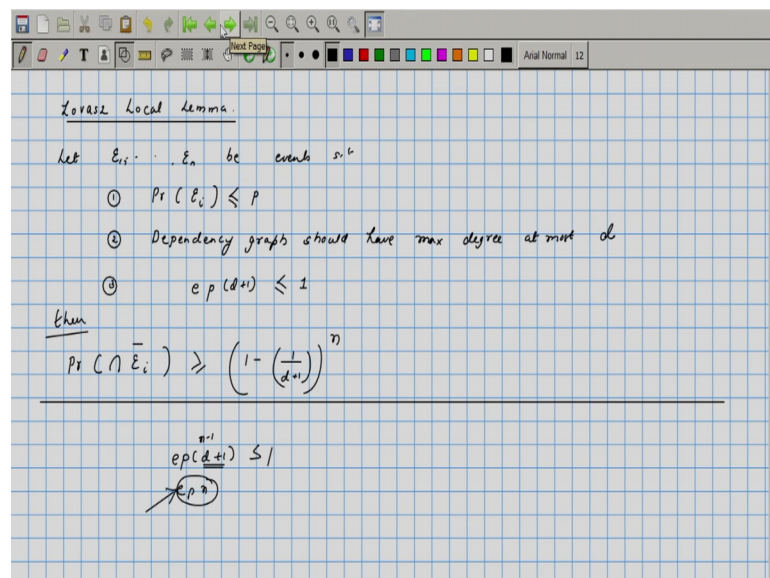 T
Next Page
Arial Normal 12
Lovasz Local Lemma.
Let ℰ₁, . . . ℰₙ be events s.t
① Pr ( ℰᵢ ) ⩽ p
② Dependency graph should have max degree at most d
③ e p (d+1) ⩽ 1
then
Pr ( ∩ ℰ̅ᵢ ) ⩾ ( 1 - ( 1/(d+1) ) )ⁿ
n-1
ep(d+1) ≤ 1